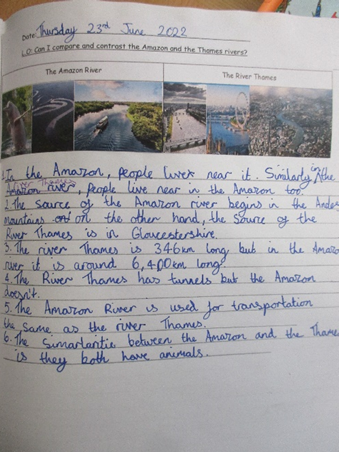 Date: Thursday 23rd June 2022
L.O: Can I compare and contrast the Amazon and the Thames rivers?
The Amazon River
The River Thames
1. In the Amazon, people lives near it. Similarly in the
river, people live near in the Amazon too.
2. The source of the Amazon river begins in the Andes
Mountains on the other hand, the source of the
River Thames is in Gloucestershire.
3. The river Thames is 346km long but in the Amazon
river it is around 6,400km long.
4. The River Thames has tunnels but the Amazon
doesn't.
5. The Amazon River is used for transportation
the same as the river Thames.
6. The Simarlantie between the Amazon and the Thames
is they both have animals.